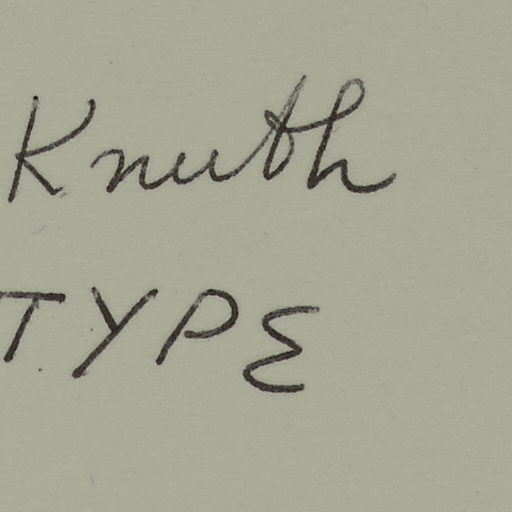 Knuth
TYPE